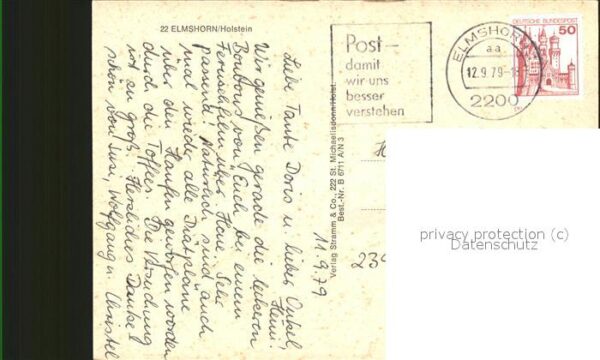 22 ELMSHORN/Holstein
Liebe Tante Doris u. lieber Onkel
Heini!
Wir genießen gerade die leckeren
Bonbons von Euch bei einem
Fernsehfilm über Sehr
passend! Natürlich sind auch
mal wieder alle Diätpläne
über den Haufen geworfen worden
durch die Toffees. Die Versuchung
ist zu groß. Herzliches Danke!
schön von Susi, Wolfgang u. Christel
Verlag Stramm & Co., 222 St. Michaelisdonn/Holst.
Best.-Nr. B 6711 A/N 3
11.9.79
Post-
damit
wir uns
besser
verstehen
ELMSHORN
aa
12.9.79
2200
DEUTSCHE BUNDESPOST
50
privacy protection (c)
Datenschutz